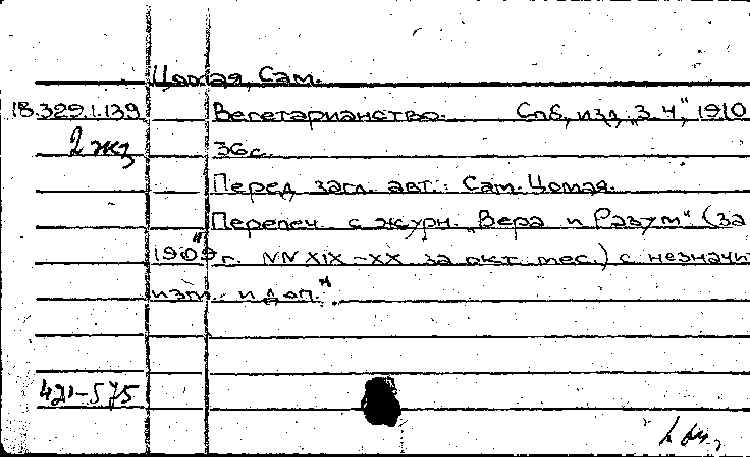 Цомая, Сам.
18.329.1.139 Вегетарианство. Спб, изд. „З. Ч.", 1910
2 экз 36 с.
Перед загл. авт.: Сам. Цомая.
Перепеч. с журн. „Вера и Разум" (за
1909 г. NN XIX-XX за окт. мес.) с незначи
изм. и доп."
421-575